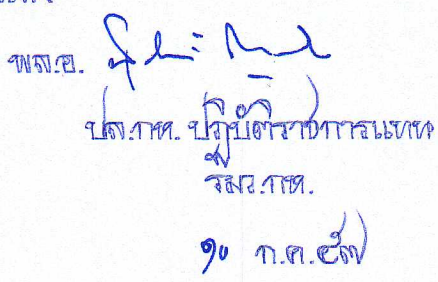 พล.อ.
ปล.กห. ปฏิบัติราชการแทน
รมว.กห.
๑๐ ก.ค. ๕๗